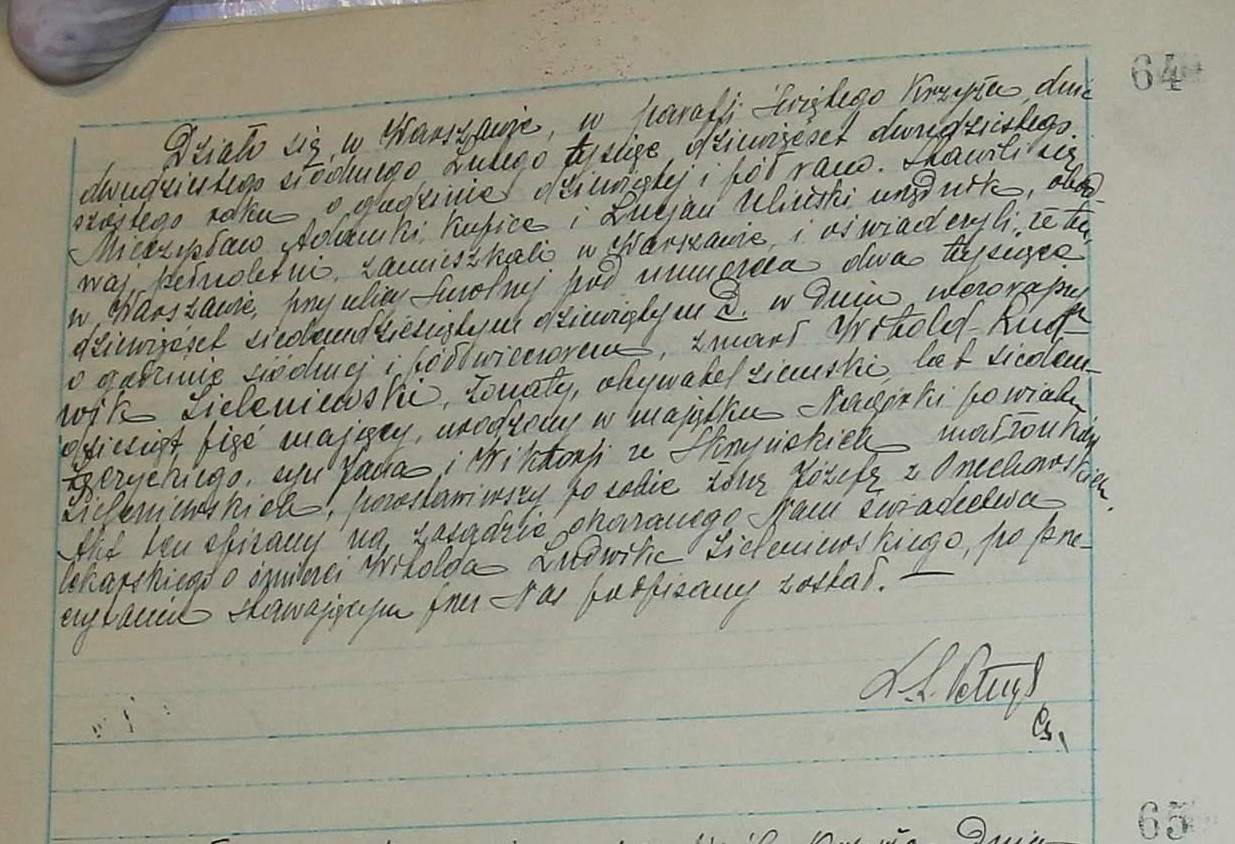 64
Działo się w Warszawie, w parafji Świętego Krzyża, dnia
dwudziestego siódmego Lutego tysiąc dziewięćset dwudziestego
szóstego roku o godzinie dziewiątej i pół rano. Stawili się
Mieczysław Adamski, Kupiec i Lucjan Uliński urzędnik, obad-
waj pełnoletni, zamieszkali w Warszawie, i oświadczyli, że tu,
w Warszawie, przy ulicy Smolnej pod numerem dwa tysiące
dziewięćset siedemdziesiątym dziewiątym D. w dniu wczorajszym
o godzinie siódmej i pół wieczorem, zmarł Witold-Lud-
wik Zieleniewski, żonaty, obywatel ziemski, lat siedem-
dziesiąt pięć mający, urodzony w majątku Nagórki powiatu
Łęczyckiego, syn Jana i Wiktorji ze Skrzyńskich małżonków
Zieleniewskich, pozostawiwszy po sobie żonę Józefę z Orzechowskich.
Akt ten spisany na zasadzie okazanego Nam świadectwa
lekarskiego o śmierci Witolda Ludwika Zieleniewskiego, po prze-
czytaniu stawającym przez Nas podpisany został. —
65